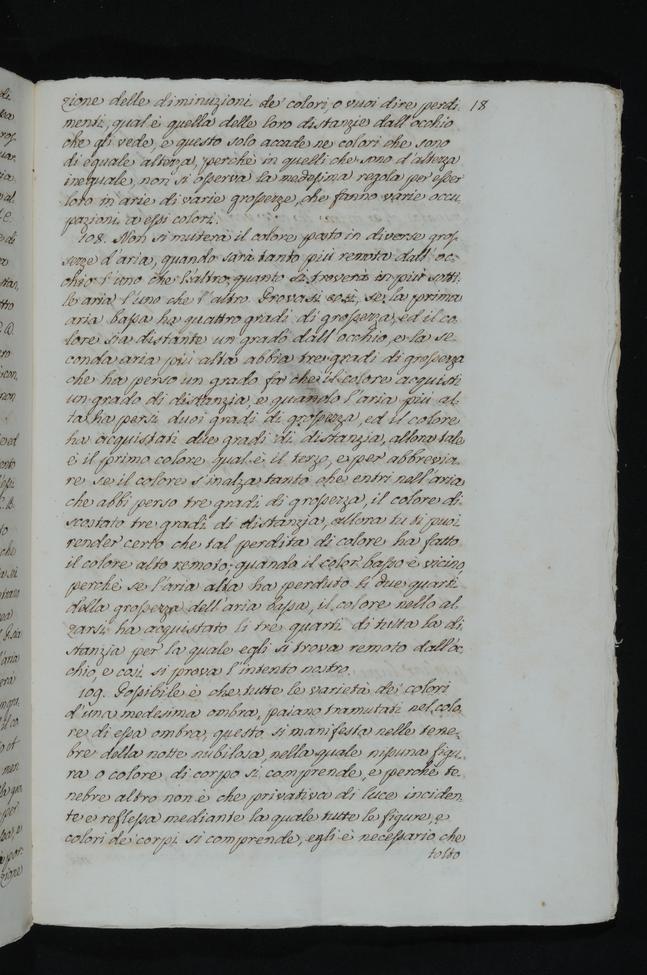 zione delle diminuzioni de' colori, o vuoi dire perdi- 18
menti, qual'è quella delle loro distanzie dall'occhio
che gli vede, e questo solo accade ne' colori che sono
di equale altezza, perchè in quelli che sono d'altezza
inequale, non si osserva la medesima regola per esser
loro in arie di varie grossezze, che fanno varie occu-
pazioni a essi colori.
108. Non si muterà il colore posto in diverse gros-
sezze d'aria, quando sarà tanto più remota dall'oc-
chio l'uno che l'altro, quanto si troverà in più sotti-
le aria l'uno che l'altro. Provasi così, se la prima
aria bassa ha quattro gradi di grossezza, ed il co-
lore sia distante un grado dall'occhio, e la se-
conda aria più alta abbia tre gradi di grossezza
che ha perso un grado fa che il colore acquisti
un grado di distanzia, e quando l'aria più al-
ta ha persi duoi gradi di grossezza, ed il colore
ha acquistati due gradi di distanzia, allora tale
è il primo colore qual'è il terzo, e per abbrevia-
re, se il colore s'inalza tanto che entri nell'aria
che abbi perso tre gradi di grossezza, il colore di-
scostato tre gradi di distanzia, allora tu ti puoi
render certo che tal perdita di colore ha fatto
il colore alto remoto, quando il color basso è vicino
perchè se l'aria alta ha perduto li due quarti
della grossezza dell'aria bassa, il colore nello al-
zarsi ha acquistato li tre quarti di tutta la di-
stanzia per la quale egli si trova remoto dall'oc-
chio, e così si prova l'intento nostro.
109. Possibile è che tutte le varietà dei colori
d'una medesima ombra, paiano tramutati nel colo-
re di essa ombra, questo si manifesta nelle tene-
bre della notte nubilosa, nella quale nissuna figu-
ra o colore di corpo si comprende, e perchè te-
nebre altro non è che privativa di luce inciden-
te e reflessa mediante la quale tutte le figure, e
colori de' corpi si comprende, egli è necessario, che
tolto